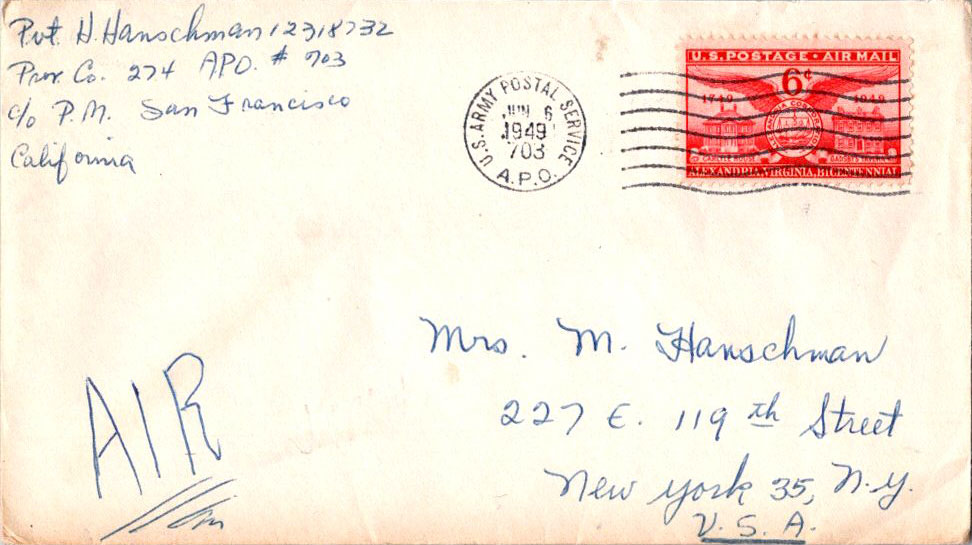 Pvt. H. Hanschman 12318732
Prov. Co. 274 APO. # 703
c/o P.M. San Francisco
California
U.S. ARMY POSTAL SERVICE
JUN 6
1949
703
A.P.O.
U.S. POSTAGE · AIR MAIL
6¢
1749 1949
ALEXANDRIA, VIRGINIA, BICENTENNIAL
Mrs. M. Hanschman
227 E. 119th Street
New York 35, N.Y.
U.S.A.
AIR